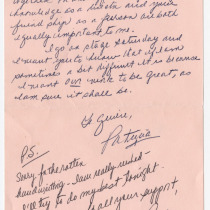 knowledge as a ... and your
friend ship as a person are both
equally important to me.
I go on stage Saturday and
I want you to know that if I am
sometimes a bit difficult it is because
I want our work to be great, as
I am sure it shall be.
Patricia
P.S.
Sorry for the rotten
handwriting - I am really rushed -
I'll try to do my best tonight.
all your support,